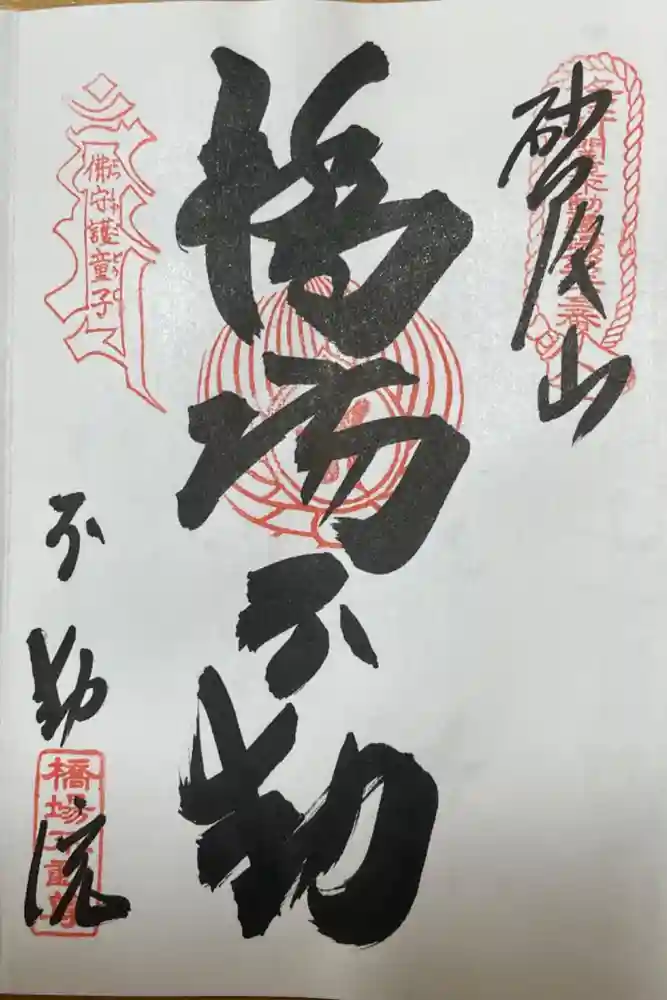 砂尾山
橋場不動
佛守護童子
不動院
橋場不動尊